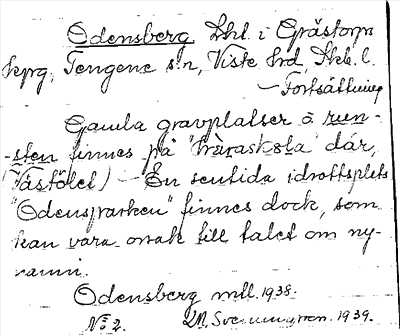 Odensberg Shl. i Grästorps
kprg, Tengene s:n, Viste hrd, Skb. l.
— Fortsättning
Gamla gravplatser å run-
-sten finnes på "haraskola" där,
(Tästölet) — En sentida idrottsplats
"Odensparken" finnes dock, som
kan vara orsak till talet om ny-
namn.
Odensberg mtl. 1938.
No 2. 1939.